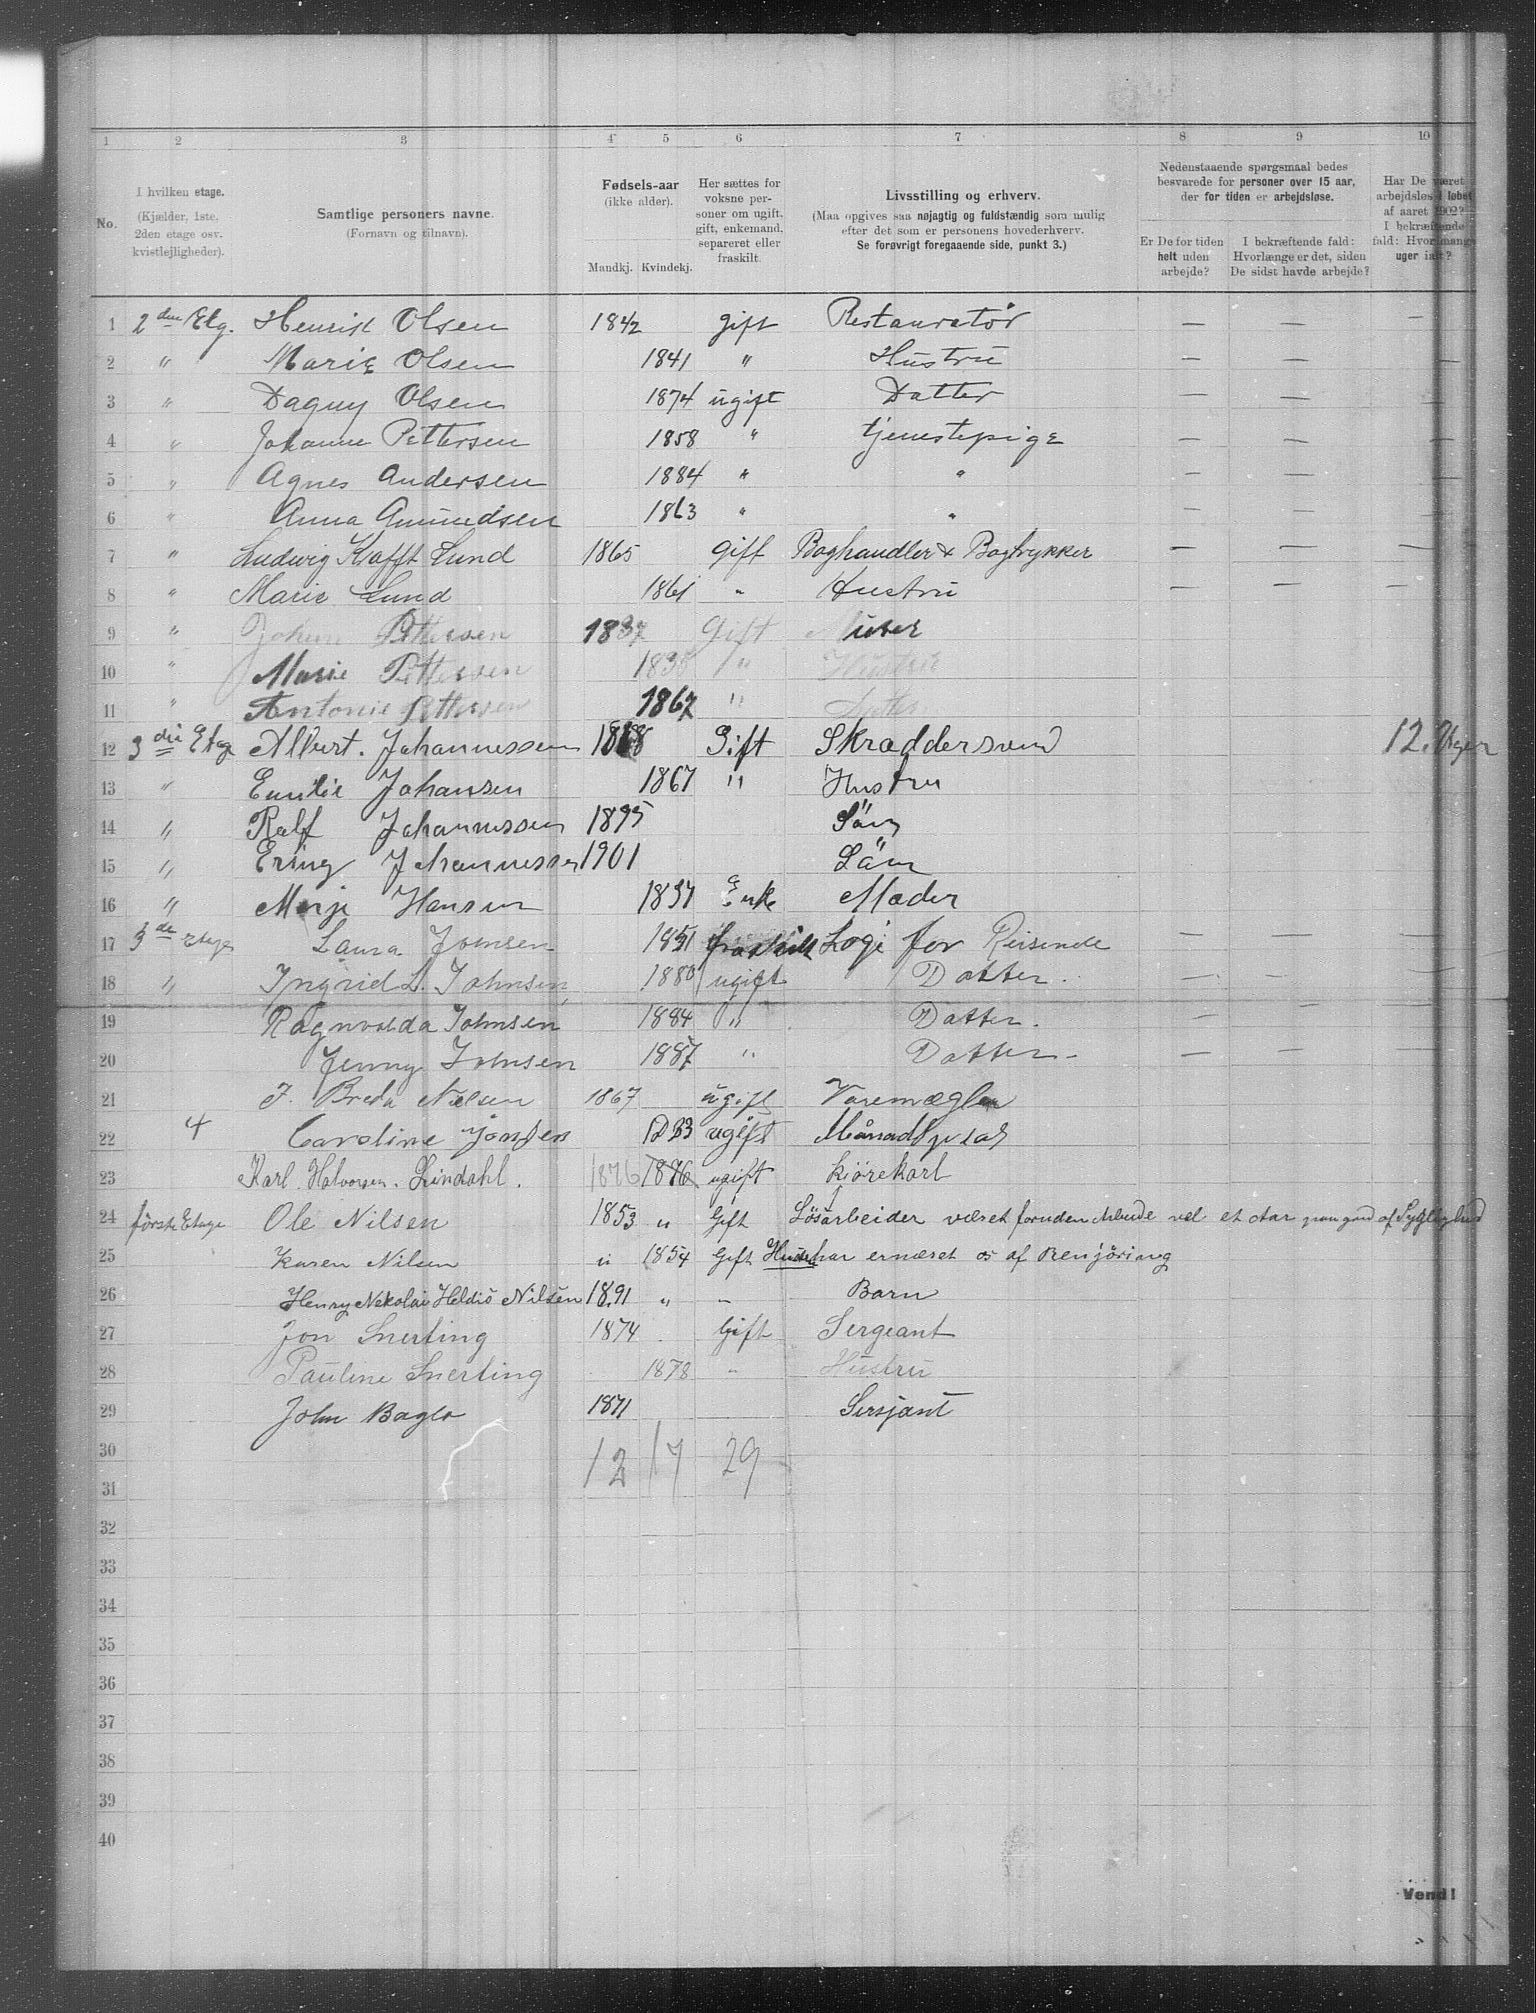 1 2 3 4 5 6 7 8 9 10
No.
I hvilken etage.
(Kjælder, 1ste. 2den etage osv. kvistlejligheder).
Samtlige personers navne.
(Fornavn og tilnavn).
Fødsels-aar
(ikke alder).
Mandkj. Kvindekj.
Her sættes for voksne personer om ugift, gift, enkemand, separeret eller fraskilt.
Livsstilling og erhverv.
(Maa opgives saa nøjagtig og fuldstændig som mulig
efter det som er personens hovederhverv.
Se forøvrigt foregaaende side, punkt 3.)
Nedenstaaende spørgsmaal bedes
besvarede for personer over 15 aar,
der for tiden er arbejdsløse.
Er De for tiden helt uden arbejde?
I bekræftende fald: Hvorlænge er det, siden De sidst havde arbejde?
Har De været arbejdsløs i løbet af aaret 1902? I bekræftende fald: Hvor mange uger ialt?
1 2den Etg. Henrik Olsen 1842 gift Restauratør — — —
2 " Marie Olsen 1841 " Hustru — — —
3 " Dagny Olsen 1874 ugift Datter — — —
4 " Johanne Pettersen 1858 " tjenestepige — — —
5 " Agnes Andersen 1884 " " — — —
6 " Anna Amundsen 1863 " " — — —
7 " Ludwig Krafft Lund 1865 gift Boghandler & Bogtrykker — — —
8 " Marie Lund 1861 " Hustru — — —
9 " Johan Pettersen 1837 Gift Murer
10 " Marie Pettersen 1835 " Hustru
11 " Antonie Pettersen 1867 " Datter
12 3die Etage Albert. Johannessen 1868 Gift Skræddersvend 12. Uger
13 " Emilie Johansen 1867 " Hustru
14 " Ralf Johannessen 1895 Sön
15 " Erling Johannessen 1901 Sön
16 " Hansen 1837 Enke Moder
17 3de Etage Laura Johnsen 1851 fraskilt Logi for Reisende — — —
18 " Ingrid L. Johnsen 1880 ugift Datter. — — —
19 Ragnvalda Johnsen 1884 " Datter. — — —
20 Jenny Johnsen 1887 " Datter — — —
21 J. Breda Nielsen 1867 ugift Varemægler
22 4 Caroline Jonsen 1833 ugift
23 Karl Halvorsen Lindahl. 1876 1876 ugift kjörekarl
24 förste Etage Ole Nilsen 1853 " Gift Lösarbeider været foruden Arbeide vel et Aar paa
25 Karen Nilsen " 1854 Gift har ernæret os af Renjöring
26 Henry Nikolai Nilsen 1891 " — Barn
27 Jon Snerting 1874 Gift Sergeant
28 Pauline Snerting 1878 " Hustru
29 John Baglo 1871 Sersjant
30 12 17 29
31
32
33
34
35
36
37
38
39
40
Vend!